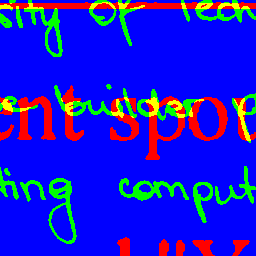 sity of tech
builder
ent spou
ting comput